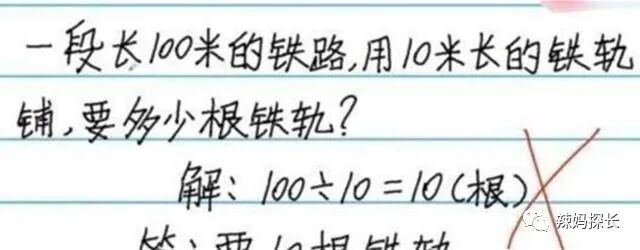 一段长100米的铁路,用10米长的铁轨
铺,要多少根铁轨?
解: 100÷10=10(根)
答:要10根铁轨
辣妈探长